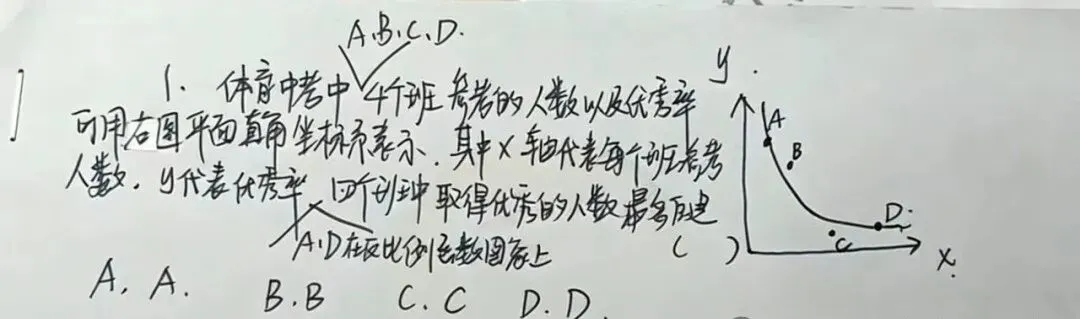 A.B.C.D.
1. 体育中考中4个班参考的人数以及优秀率
可用右图平面直角坐标系表示.其中X轴代表每个班参考
人数,y代表优秀率,四个班中取得优秀的人数最多的是
A.D在反比例函数图象上 ( )
A. A. B. B C. C D. D.
y.
A
B
C
D
x.